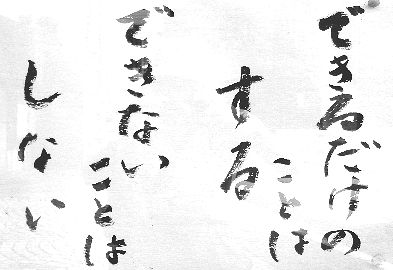 できるだけの
ことは
する
できない
ことは
しない